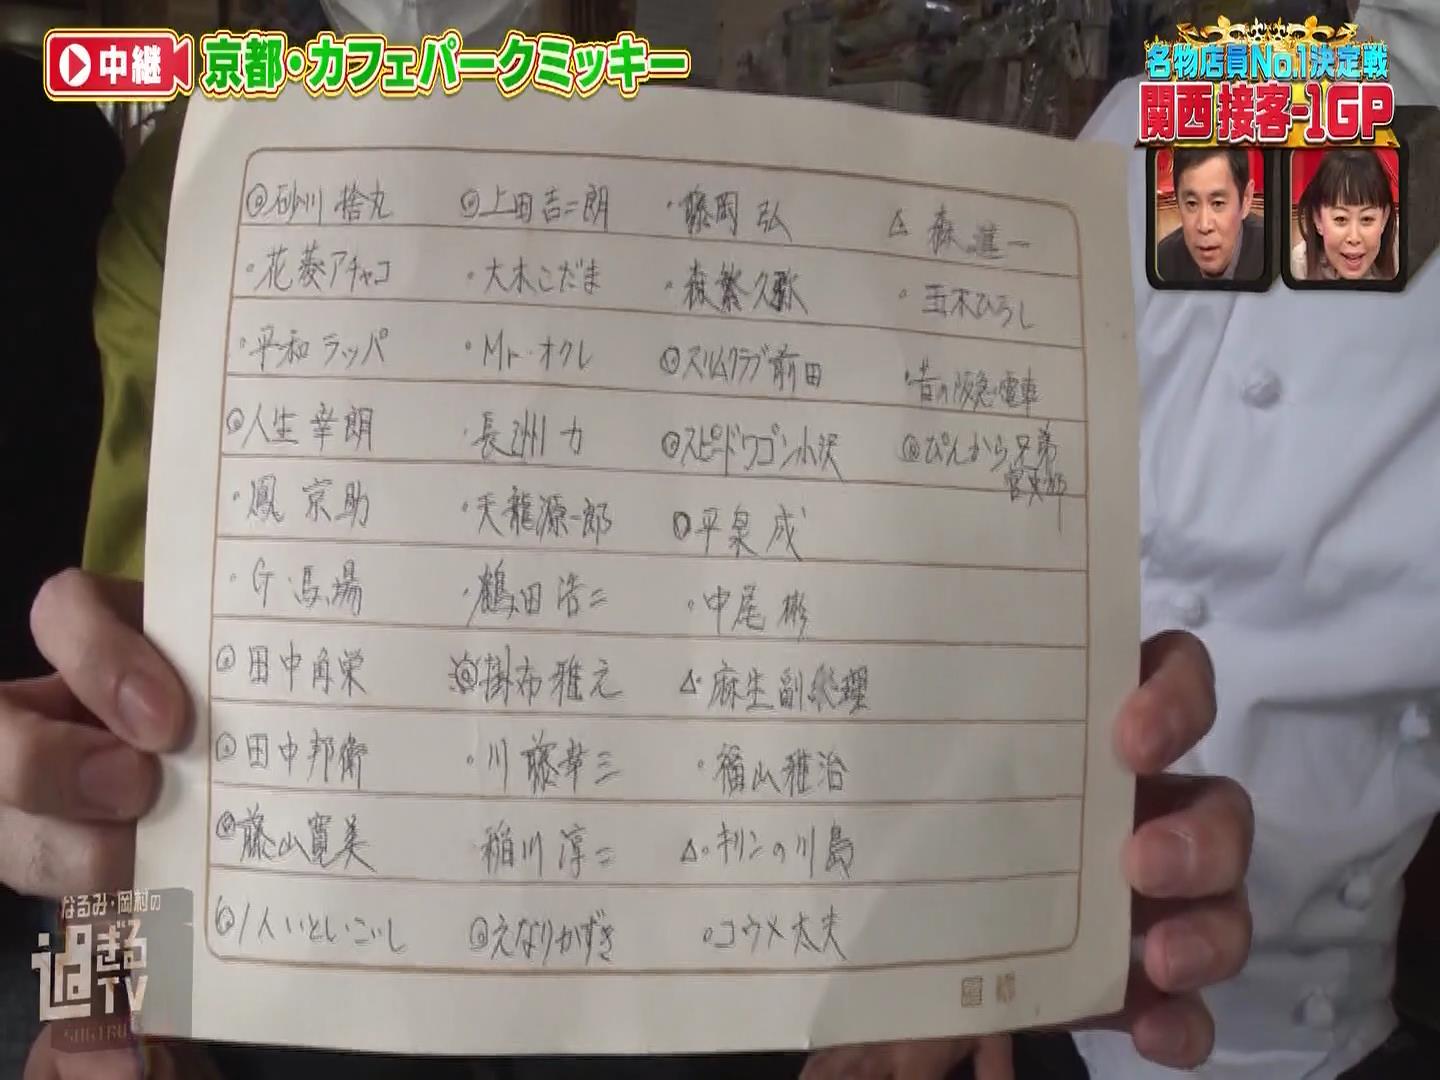 中継 京都・カフェパークミッキー
名物店員No.1決定戦
関西 接客-1GP
◎砂川 捨丸
・花菱アチャコ
・平和 ラッパ
◎人生 幸朗
・鳳 京助
・G 馬場
◎田中角栄
◎田中邦衛
◎藤山寛美
◎1人いとしこいし
◎上田吉二朗
・大木こだま
・Mr.オクレ
・長州 力
・天龍源一郎
・鶴田 浩二
◎掛布 雅之
・川藤幸三
稲川 淳二
◎えなりかずき
・藤岡 弘
・森繁久彌
◎スリムクラブ前田
◎スピードワゴン小沢
◎平泉 成
・中尾 彬
△・麻生副総理
・福山雅治
△・キリンの川島
・コウメ太夫
△ 森 進一
・玉木ひろし
・昔の阪急電車
◎ぴんから兄弟
宮史郎
なるみ・岡村の
過ぎる
TV
SUGIRU